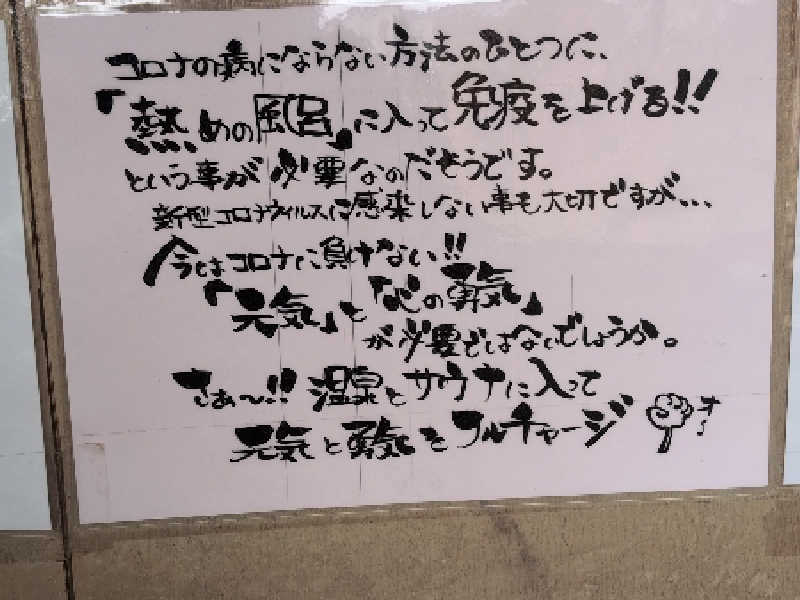 コロナの病にならない方法のひとつに、
「熱めの風呂」に入って免疫を上げる!!
という事が必要なのだそうです。
新型コロナウィルスに感染しない事も大切ですが...
今はコロナに負けない!!
「元気」と「心の勇気」
が必要ではないでしょうか。
さぁ〜!! 温泉とサウナに入って
元気と勇気をフルチャージ
オー